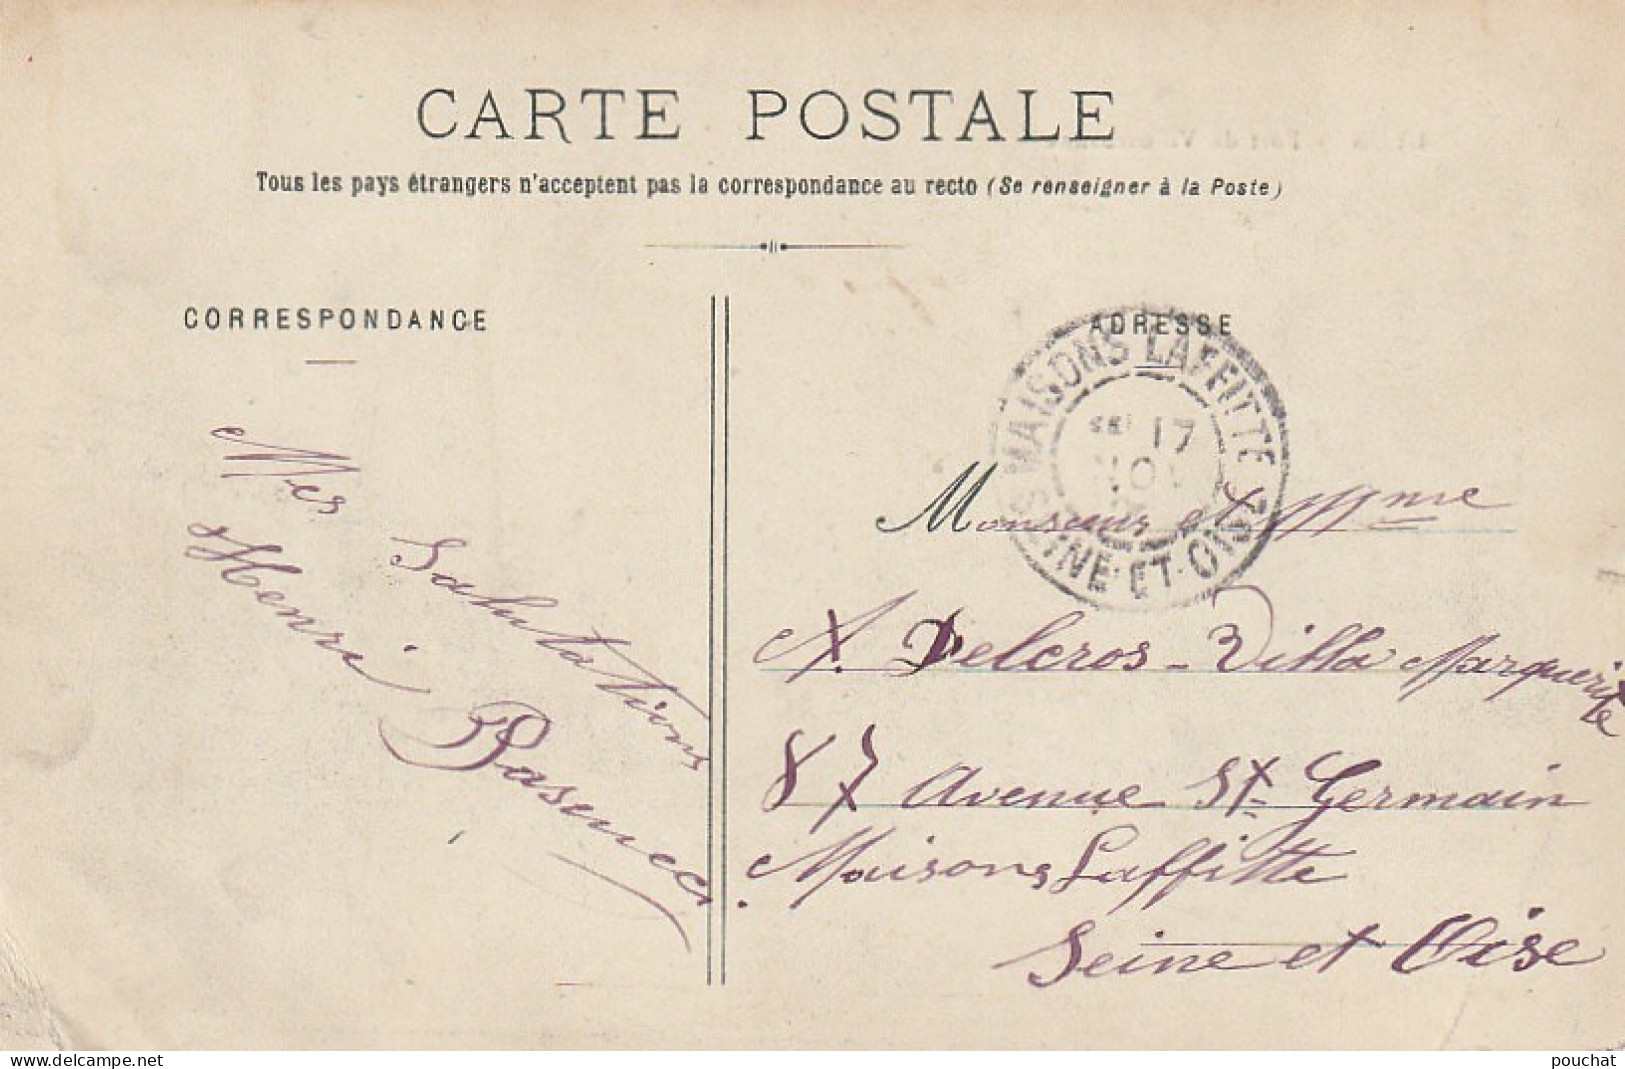 CARTE POSTALE
Tous les pays étrangers n'acceptent pas la correspondance au recto (Se renseigner à la Poste)
CORRESPONDANCE
ADRESSE
MAISONS LAFFITTE
17
ET OISE
Mes Salutations
Henri
Monsieur et Mme
A. Delcros - Villa Marguerite
87 Avenue St Germain
Maisons Laffitte
Seine et Oise
www.delcampe.net
pouchat